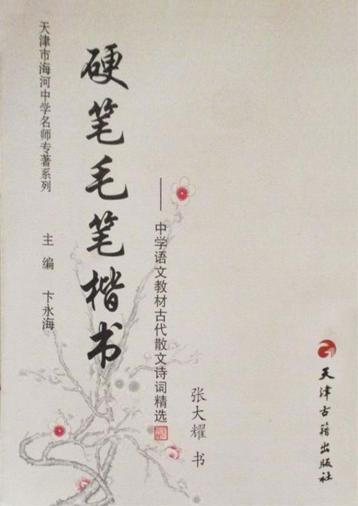 天津市海河中学名师专著系列
主编 卞永海
硬笔毛笔楷书
——中学语文教材古代散文诗词精选
张大耀 书
天津古籍出版社